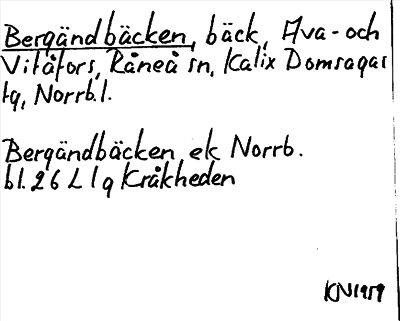 Bergändbäcken, bäck, Ava- och
Vitåfors, Råneå sn, Kalix Domsagas
tg, Norrb. l.
Bergändbäcken, ek Norrb.
bl. 26 L l g Kråkheden
KN 1959